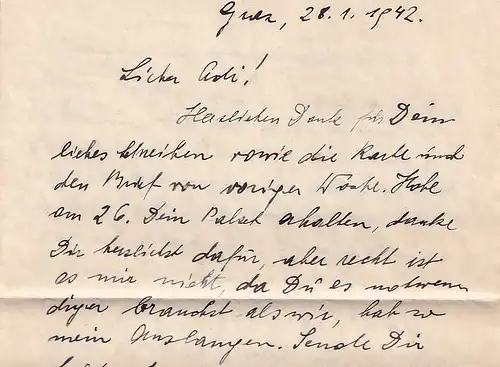 Graz, 28.1.1942.
Lieber Adi!
Herzlichen Dank für Dein
liebes Schreiben sowie die Karte und
den Brief von voriger Woche. Habe
am 26. Dein Paket erhalten, danke
Dir herzlichst dafür, aber recht ist
es mir nicht, da Du es notwen
diger brauchst als wir, hab so
mein Auslangen. Sende Dir